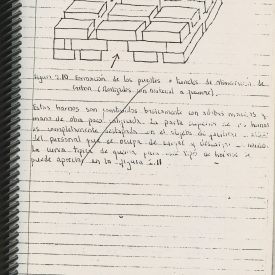 Figura 2.10 Formación de los puentes o túneles de alimentación de
carbón (Rellenados con material a quemar).
Estos hornos son construidos básicamente con adobes macizos y
mano de obra poco calificada. La parte superior de los hornos
es completamente destapada con el objeto de
del personal que se ocupa de cargar y descargar
La curva típica de quema para este tipo de hornos se
puede apreciar en la figura 2.11